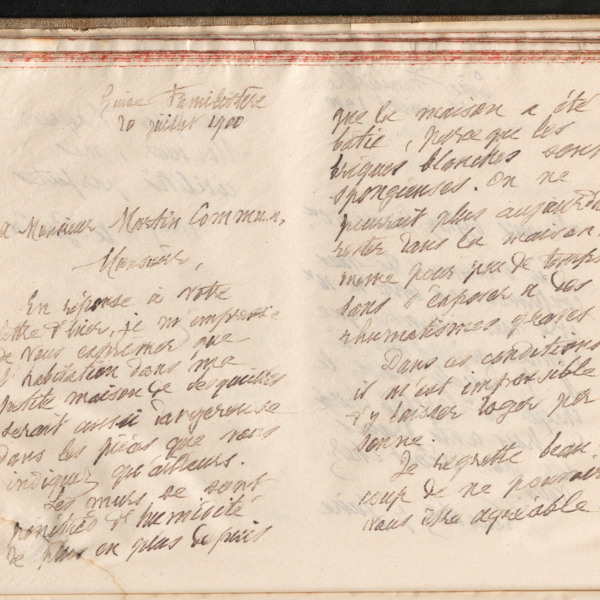 Guise Familistère
20 juillet 1900
à Monsieur Martin Commun,
Monsieur,
En réponse à votre
lettre d'hier, je m'empresse
de vous exprimer que
l'habitation dans ma
petite maison de Lesquielles
serait aussi dangereuse
dans les pièces que vous
indiquez qu'ailleurs.
Les murs se sont
pénétrés d'humidité
de plus en plus depuis
que la maison a été
bâtie, parce que les
briques blanches sont
spongieuses. On ne
pourrait plus aujourd'hui
rester dans la maison
même pour peu de temps
sans s'exposer à des
rhumatismes graves.
Dans ces conditions
il m'est impossible
d'y laisser loger per
sonne.
Je regrette beau-
coup de ne pouvoir
vous être agréable.